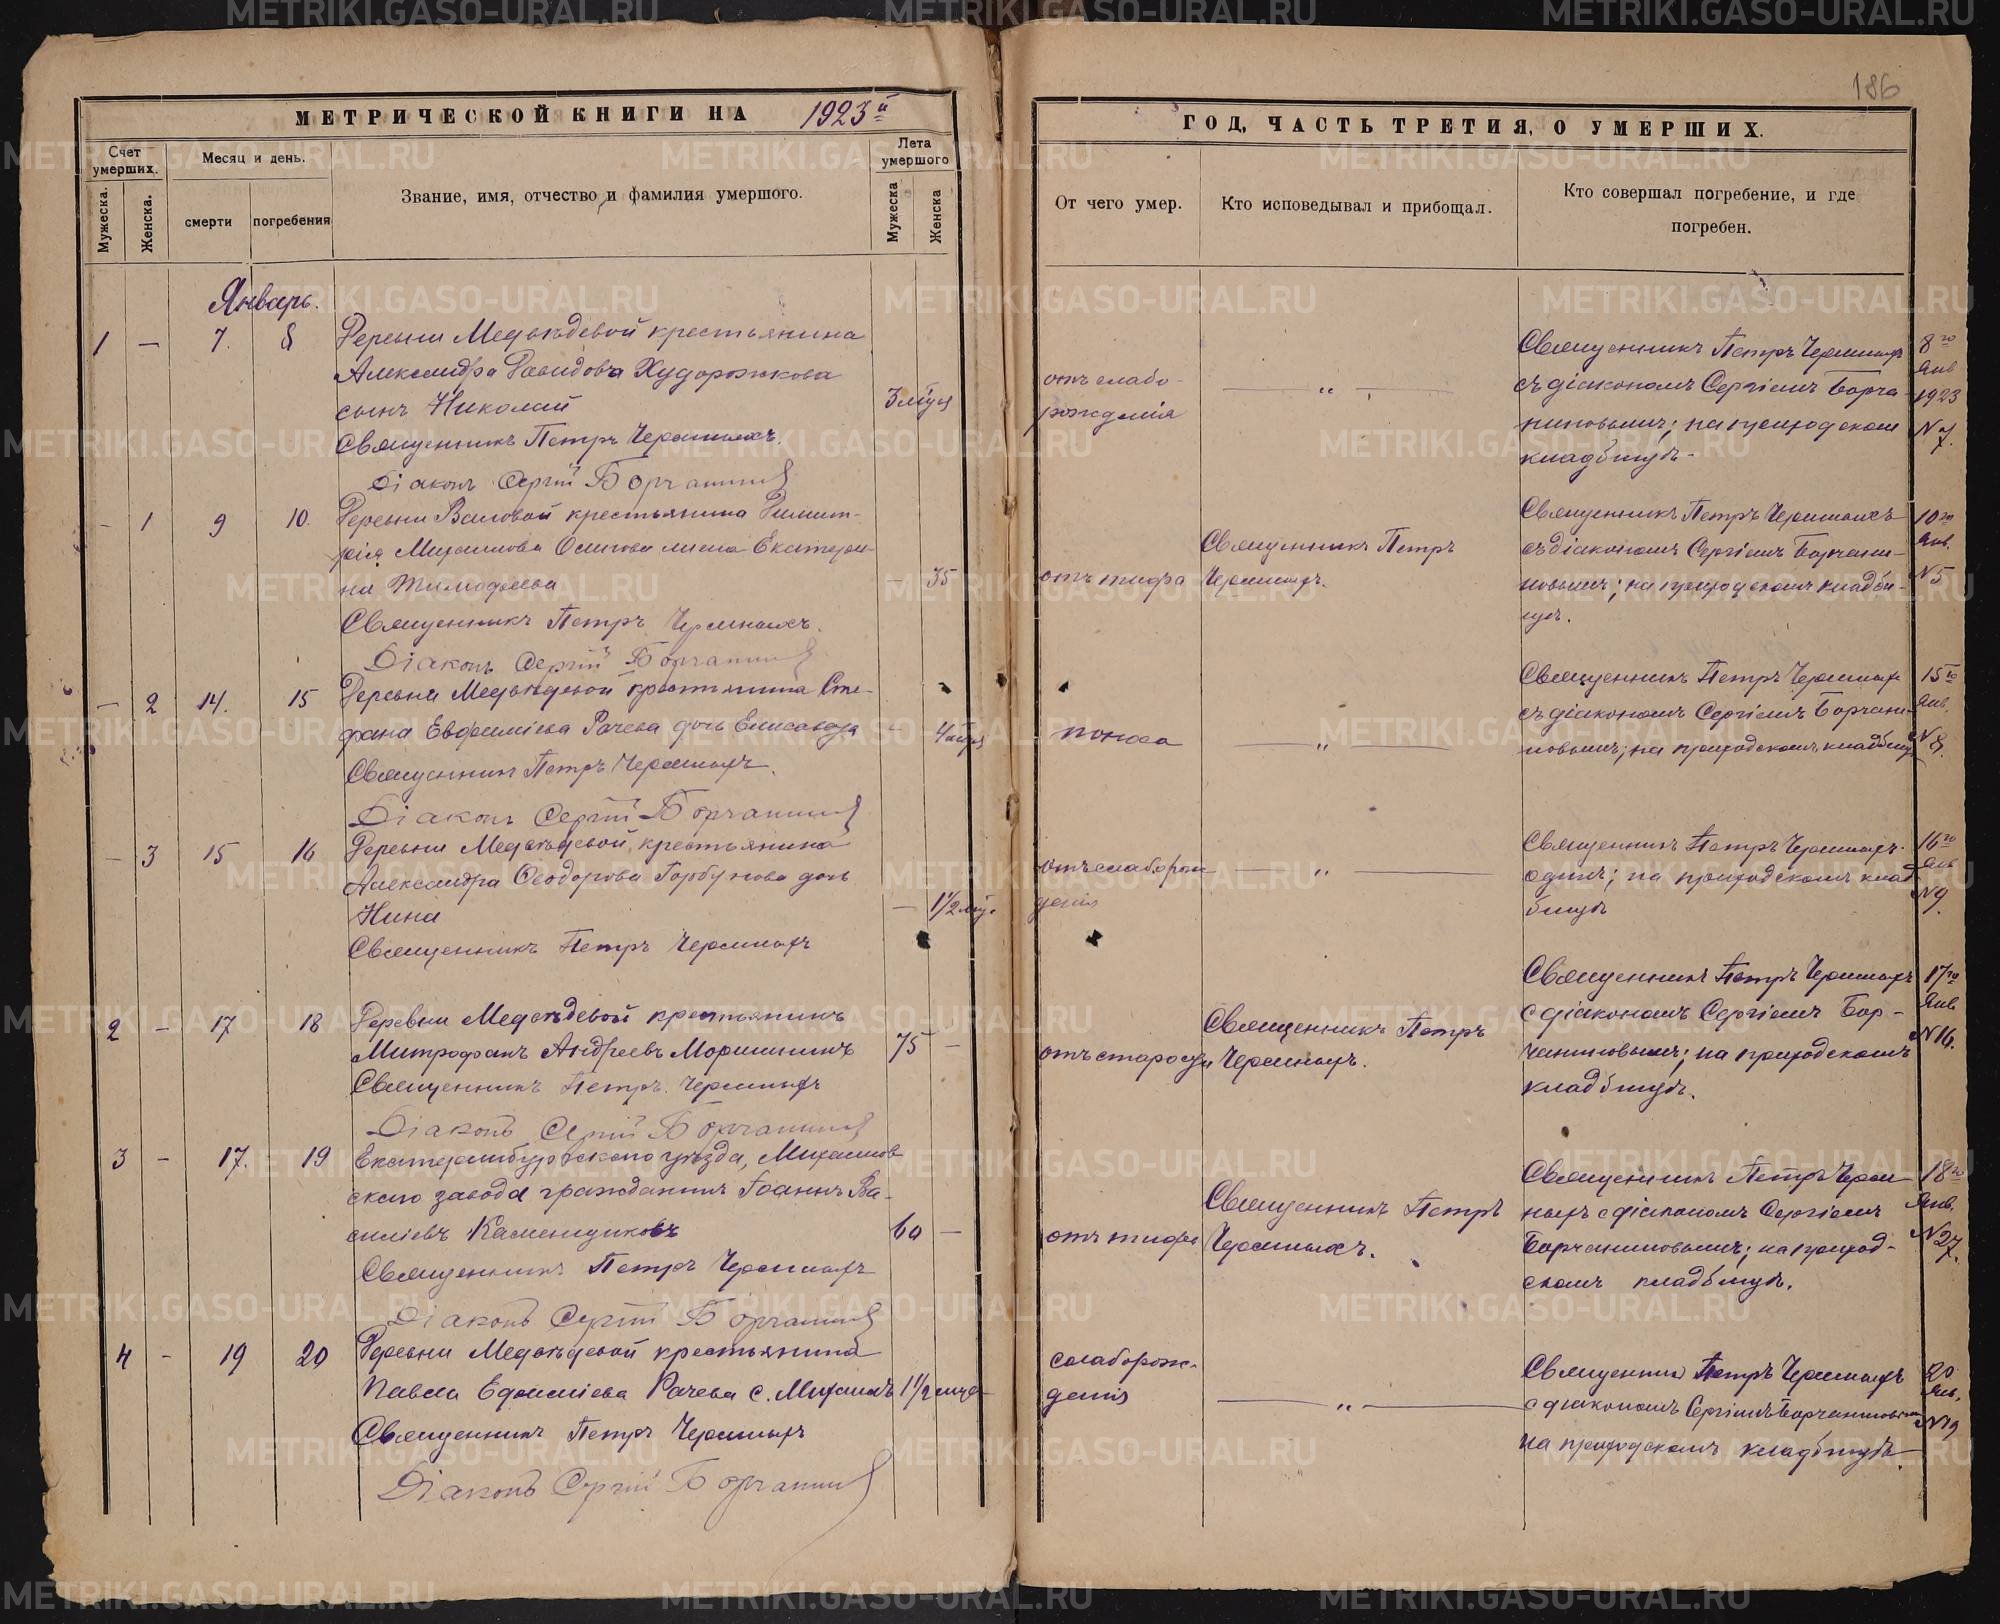 186
МЕТРИЧЕСКОЙ КНИГИ НА 1923й
ГОД, ЧАСТЬ ТРЕТИЯ, О УМЕРШИХ.
Счет умерших.
Мужеска.
Женска.
Месяц и день.
смерти
погребения
Звание, имя, отчество и фамилия умершого.
Лета умершого
Мужеска
Женска
От чего умер.
Кто исповедывал и прибощал.
Кто совершал погребение, и где
погребен.
Январь.
1 — 7. 8
Деревни Медвѣдевой крестьянина
Александра Давидова Худорожкова
сынъ Николай
Священникъ Петръ Черемныхъ.
Діаконъ Сергій
3
отъ слабо-
рожденія
— „ —
Священникъ Петръ Черемныхъ
съ діакономъ Сергіемъ Борча
ниновымъ; на приходскомъ
кладбищѣ.
8го
Янв
1923
N 7.
- 1 9 10.
Деревни крестьянина Димит-
рія Михаилова жена Екатери-
на Тимофеева
Священникъ Петръ Черемныхъ.
Діаконъ Сергій
— 35
отъ тифа
Священникъ Петръ
Черемныхъ.
Священникъ Петръ Черемныхъ
съ діакономъ Сергіемъ Борчани-
новымъ; на приходскомъ кладби-
щѣ.
10го
Янв.
N 5
- 2 14. 15
Деревни Медвѣдевой крестьянина Сте-
фана Евфиміева Рачева дочь Елисавета
Священникъ Петръ Черемныхъ.
Діаконъ Сергій
— 4
поноса
— „ —
Священникъ Петръ Черемныхъ
съ діакономъ Сергіемъ Борчани-
новымъ; на приходскомъ кладбищѣ
15го
Янв.
N 8.
- 3 15 16
Деревни Медвѣдевой крестьянина
Александра Ѳеодорова Горбунова дочь
Нина
Священникъ Петръ Черемныхъ
— 1 1/2
отъ слаборож
денія
— „ —
Священникъ Петръ Черемныхъ
одинъ; на приходскомъ клад
бищѣ
16го
Янв
N 9.
2 - 17 18
Деревни Медвѣдевой крестьянинъ
Митрофанъ Андреевъ
Священникъ Петръ Черемныхъ
Діаконъ Сергій
75 —
отъ старости
Священникъ Петръ
Черемныхъ.
Священникъ Петръ Черемныхъ
с діакономъ Сергіемъ Бор-
чаниновымъ; на приходскомъ
кладбищѣ.
17го
Янв
N 16.
3 - 17. 19
Екатеринбургского уѣзда, Михайлов
ского завода гражданинъ Іоаннъ Ва-
силіевъ Каменщиковъ
Священникъ Петръ Черемныхъ
Діаконъ Сергій
60 —
отъ тифа
Священникъ Петръ
Черемныхъ.
Священникъ Петръ Черем
ныхъ с діакономъ Сергіемъ
Борчаниновымъ; на приход-
скомъ кладбищѣ.
18го
Янв.
N 27.
4 - 19 20
Деревни Медвѣдевой крестьянина
Павла Рачева с. Михаилъ
Священникъ Петръ Черемныхъ
Діаконъ Сергій
1 1/2
слаборож-
денія
— „ —
Священник Петръ Черемныхъ
с діакономъ Сергіемъ Борчаниновым
на приходскомъ кладбищѣ.
20
Янв.
N 19
METRIKI.GASO-URAL.RU